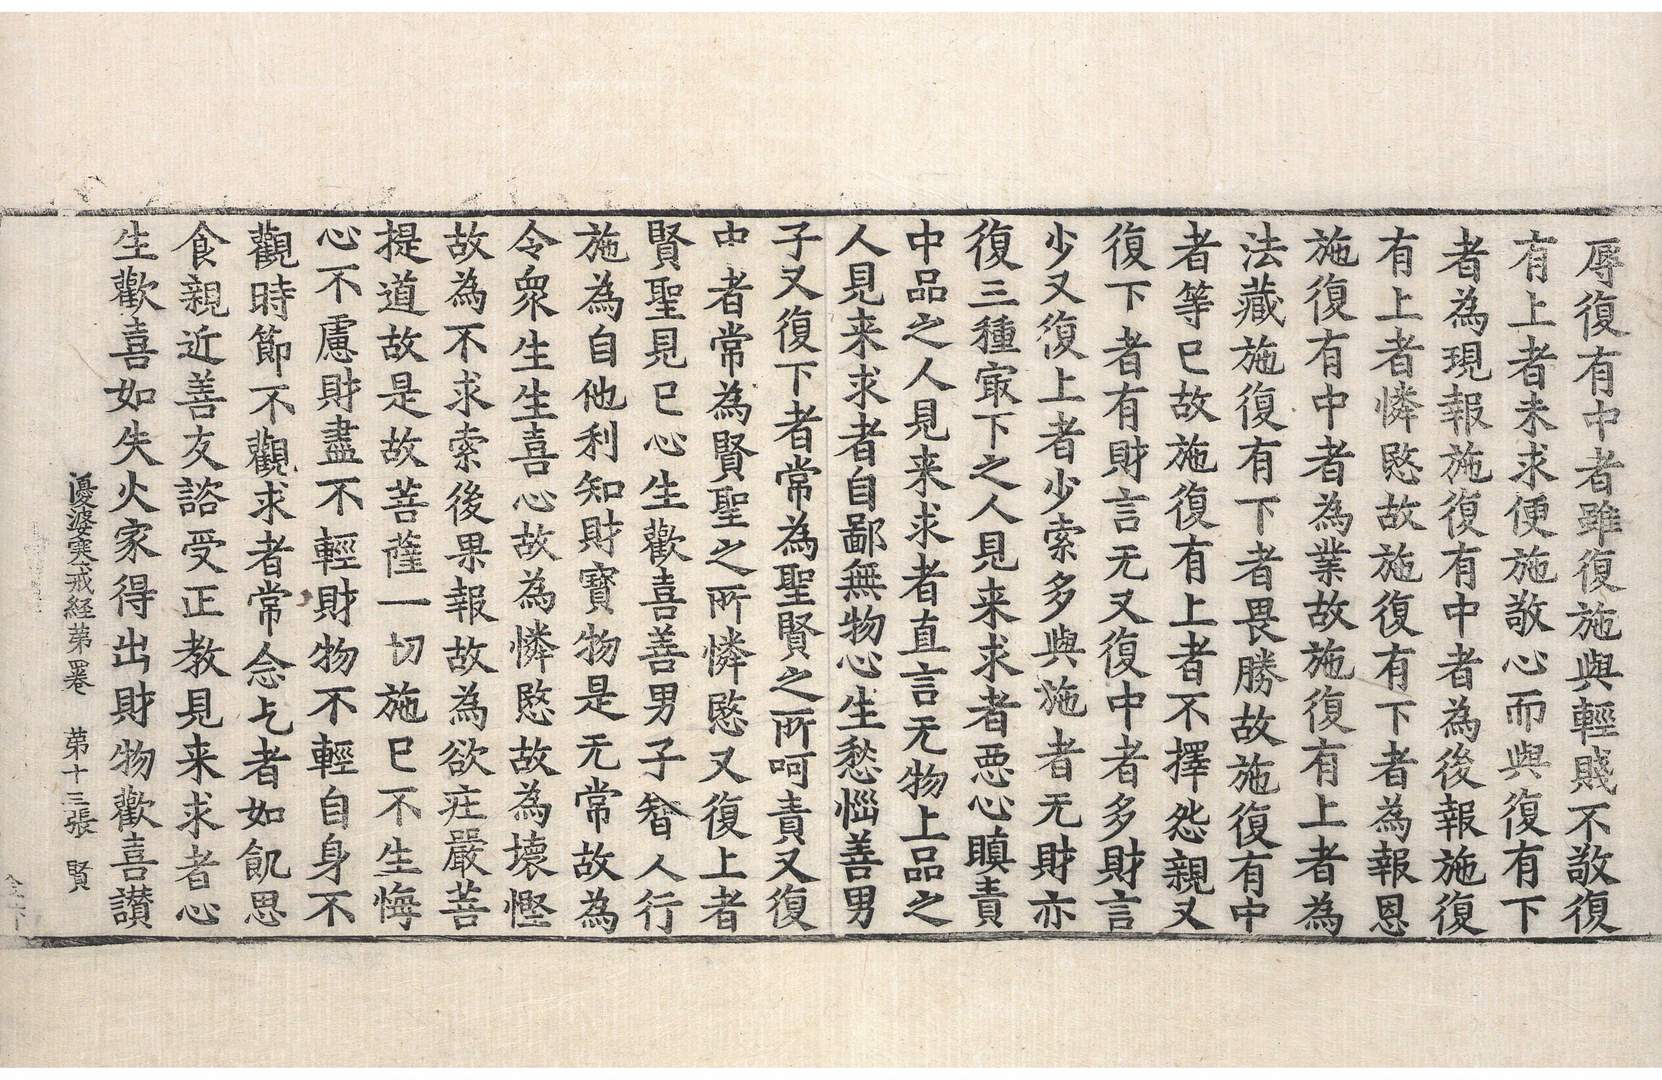 辱復有中者雖復施與輕賤不敬復
有上者未求便施敬心而與復有下
者為現報施復有中者為後報施復
有上者憐愍故施復有下者為報恩
施復有中者為業故施復有上者為
法藏施復有下者畏勝故施復有中
者等已故施復有上者不擇怨親又
復下者有財言无又復中者多財言
少又復上者少索多與施者无財亦
復三種㝡下之人見来求者惡心瞋責
中品之人見来求者直言无物上品之
人見来求者自鄙無物心生愁惱善男
子又復下者常為聖賢之所呵責又復
中者常為賢聖之所憐愍又復上者
賢聖見已心生歡喜善男子智人行
施為自他利知財寶物是无常故為
令衆生生喜心故為憐愍故為壞慳
故為不求索後果報故為欲庄嚴菩
提道故是故菩薩一切施已不生悔
心不慮財盡不輕財物不輕自身不
觀時節不觀求者常念乞者如飢思
食親近善友諮受正教見来求者心
生歡喜如失火家得出財物歡喜讚
優婆塞戒経苐四卷　苐十三張　賢